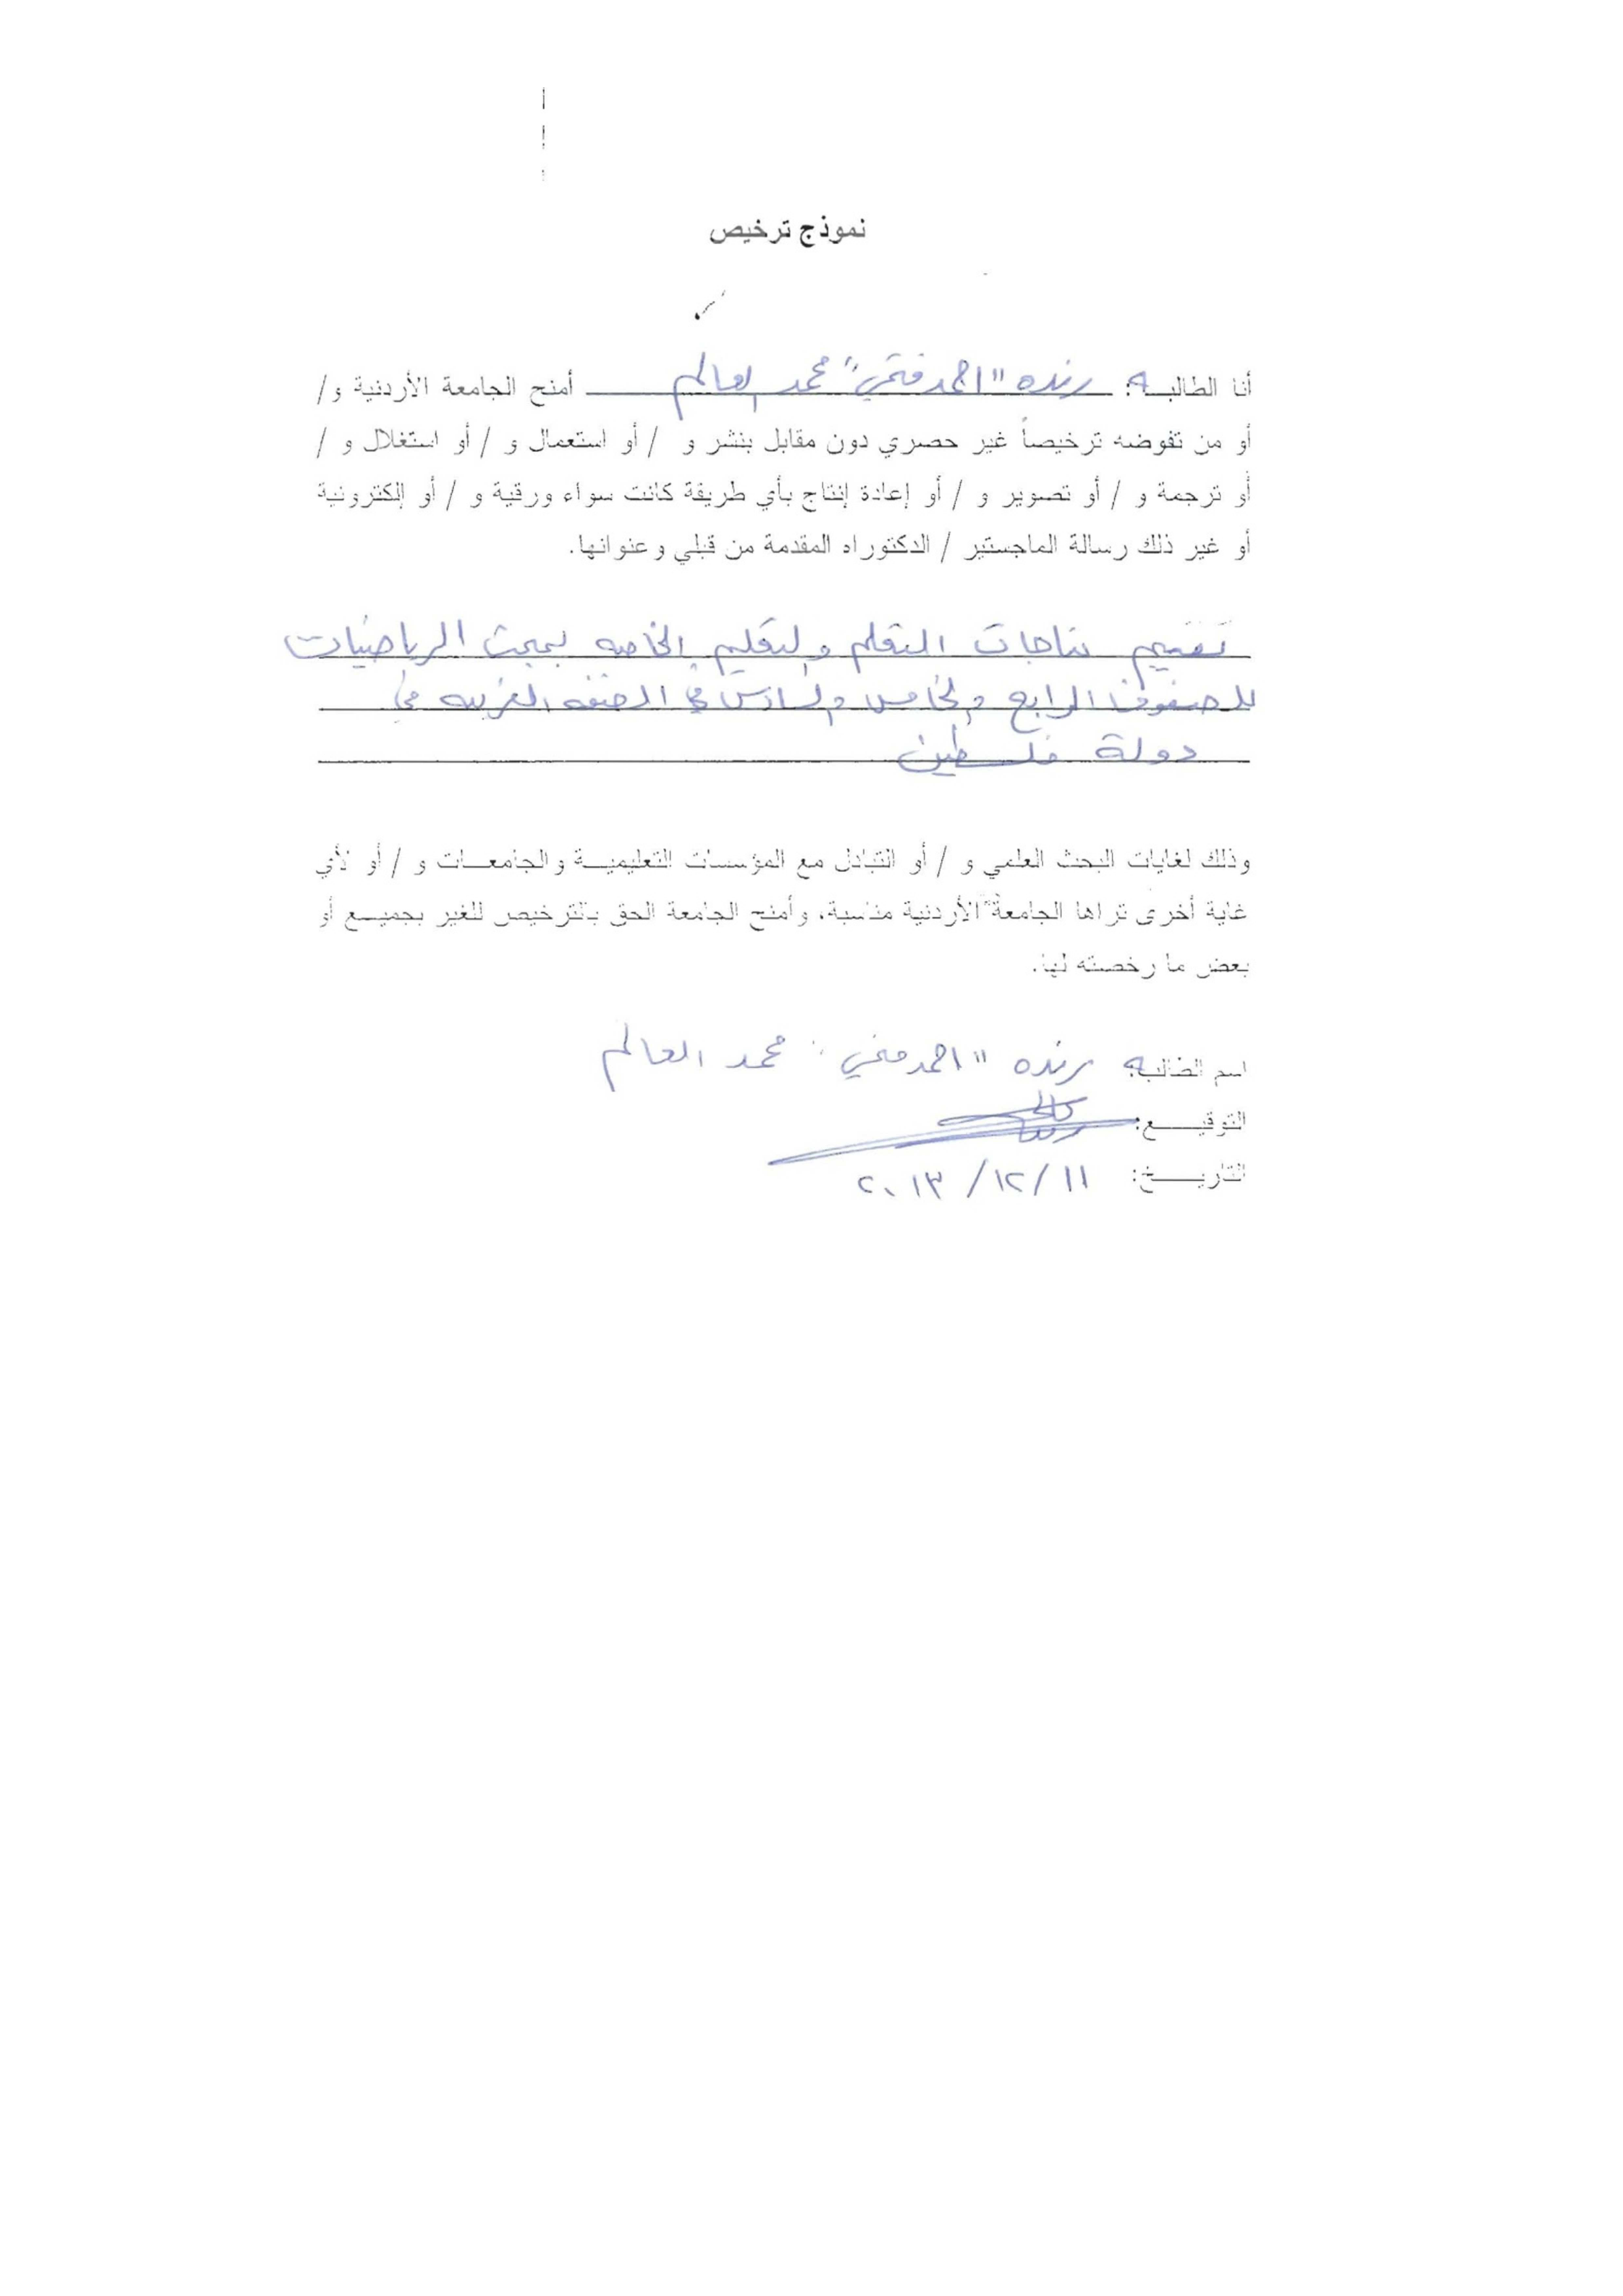 نموذج ترخيص
أنا الطالبـه: رنده "احمد فتحي" محمد العالم أمنح الجامعة الأردنية و/
أو من تفوضه ترخيصاً غير حصري دون مقابل بنشر و / أو استعمال و / أو استغلال و /
أو ترجمة و / أو تصوير و / أو إعادة إنتاج بأي طريقة كانت سواء ورقية و / أو إلكترونية
أو غير ذلك رسالة الماجستير / الدكتوراه المقدمة من قبلي وعنوانها.
تقييم نتاجات التعلم والتعليم الخاصه بمبحث الرياضيات
للصفوف الرابع والخامس والسادس في الضفه الغربيه في
دولة فلسطين
وذلك لغايات البحث العلمي و / أو التبادل مع المؤسسات التعليميـــة والجامعـــات و / أو لأي
غاية أخرى تراها الجامعة الأردنية مناسبة، وأمنح الجامعة الحق بالترخيص للغير بجميـــع أو
بعض ما رخصته لها.
اسم الطالبه: رنده "احمد فتحي" محمد العالم
التوقيـــــع:
التاريـــــخ: ١١/ ١٢/ ٢٠١٣